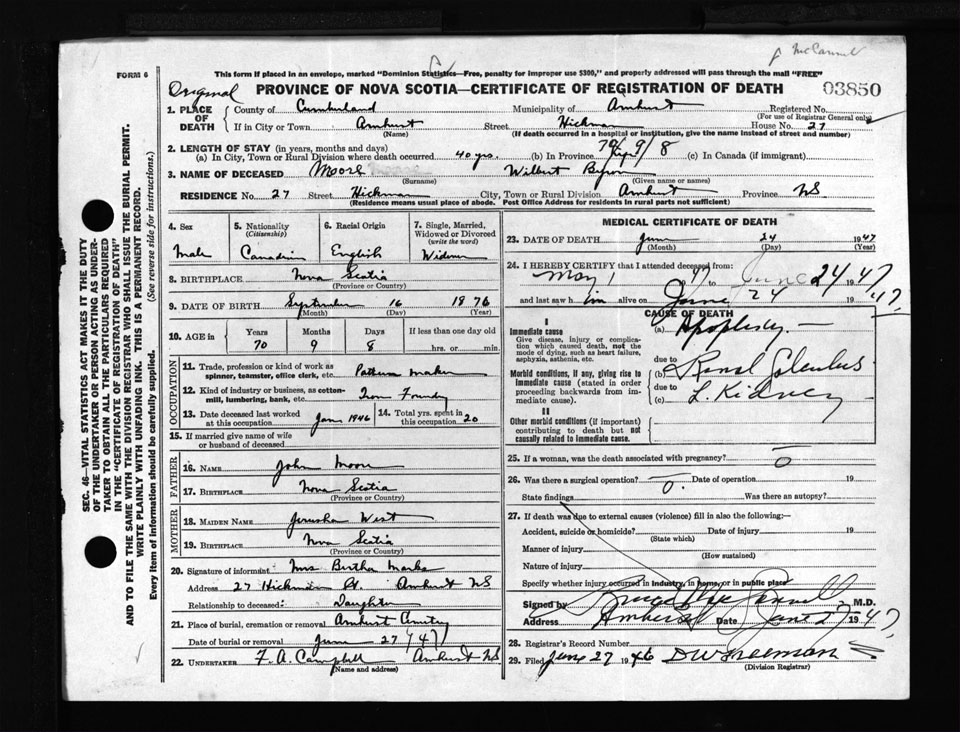 McConnel
FORM 6
This form if placed in an envelope, marked "Dominion Statistics—Free, penalty for improper use $300," and properly addressed will pass through the mail "FREE"
Original
PROVINCE OF NOVA SCOTIA—CERTIFICATE OF REGISTRATION OF DEATH
03850
1. PLACE OF DEATH
County of Cumberland Municipality of Amherst Registered No.
(For use of Registrar General only)
If in City or Town Amherst Street Hickman House No. 27
(Name) (If death occurred in a hospital or institution, give the name instead of street and number)
2. LENGTH OF STAY (in years, months and days)
(a) In City, Town or Rural Division where death occurred 40 yrs. (b) In Province 70 9/8 (c) In Canada (if immigrant)
3. NAME OF DECEASED Moore Wilbert Byron
(Surname) (Given name or names)
RESIDENCE No. 27 Street Hickman City, Town or Rural Division Amherst Province NS
(Residence means usual place of abode. Post Office Address for residents in rural parts not sufficient)
4. Sex
Male
5. Nationality
(Citizenship)
Canadian
6. Racial Origin
English
7. Single, Married, Widowed or Divorced
(write the word)
Widower
8. BIRTHPLACE Nova Scotia
(Province or Country)
9. DATE OF BIRTH September 16 1876
(Month) (Day) (Year)
10. AGE in
Years Months Days If less than one day old
70 9 8 hrs. or min.
OCCUPATION
11. Trade, profession or kind of work as spinner, teamster, office clerk, etc. Pattern maker
12. Kind of industry or business, as cotton-mill, lumbering, bank, etc. Iron Foundry
13. Date deceased last worked at this occupation Jan 1946
14. Total yrs. spent in this occupation 20
15. If married give name of wife or husband of deceased
FATHER
16. NAME John Moore
17. BIRTHPLACE Nova Scotia
(Province or Country)
MOTHER
18. MAIDEN NAME Jerusha West
19. BIRTHPLACE Nova Scotia
(Province or Country)
20. Signature of informant Mrs Bertha Marks
Address 27 Hickman St. Amherst NS
Relationship to deceased: Daughter
21. Place of burial, cremation or removal Amherst
Date of burial or removal June 27/47
22. UNDERTAKER F. A. Campbell Amherst NS
(Name and address)
MEDICAL CERTIFICATE OF DEATH
23. DATE OF DEATH June 24 1947
(Month) (Day) (Year)
24. I HEREBY CERTIFY that I attended deceased from:
May 1 1947 to June 24 1947
and last saw him alive on June 24 1947
CAUSE OF DEATH
I
Immediate cause
Give disease, injury or complication which caused death, not the mode of dying, such as heart failure, asphyxia, asthenia, etc.
(a) Apoplexy.
due to
Morbid conditions, if any, giving rise to immediate cause (stated in order proceeding backwards from immediate cause).
(b) Renal Calculus
due to
(c) L. Kidney
II
Other morbid conditions (if important) contributing to death but not causally related to immediate cause.
25. If a woman, was the death associated with pregnancy? 0
26. Was there a surgical operation? 0. Date of operation 19
State findings Was there an autopsy?
27. If death was due to external causes (violence) fill in also the following:—
Accident, suicide or homicide? Date of injury 19
(State which)
Manner of injury
(How sustained)
Nature of injury
Specify whether injury occurred in industry, in home, or in public place
Signed by M.D.
Address Amherst Date June 27 1947
28. Registrar's Record Number
29. Filed June 27 1946 DW Freeman
(Division Registrar)
SEC. 46—VITAL STATISTICS ACT MAKES IT THE DUTY
OF THE UNDERTAKER OR PERSON ACTING AS UNDER-
TAKER TO OBTAIN ALL THE PARTICULARS REQUIRED
IN THE "CERTIFICATE OF REGISTRATION OF DEATH"
AND TO FILE THE SAME WITH THE DIVISION REGISTRAR WHO SHALL ISSUE THE BURIAL PERMIT.
WRITE PLAINLY WITH UNFADING INK. THIS IS A PERMANENT RECORD.
Every item of information should be carefully supplied. (See reverse side for instructions.)